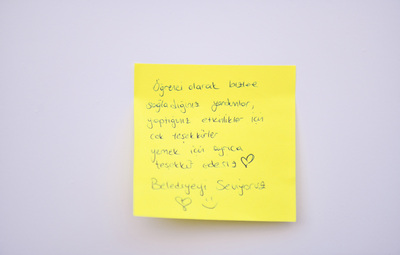 Öğrenci olarak bizlere
sağladığınız yardımlar,
yaptığınız etkinlikler için
çok teşekkürler
yemek için ayrıca
teşekkür ederiz
Belediyeyi Seviyoruz